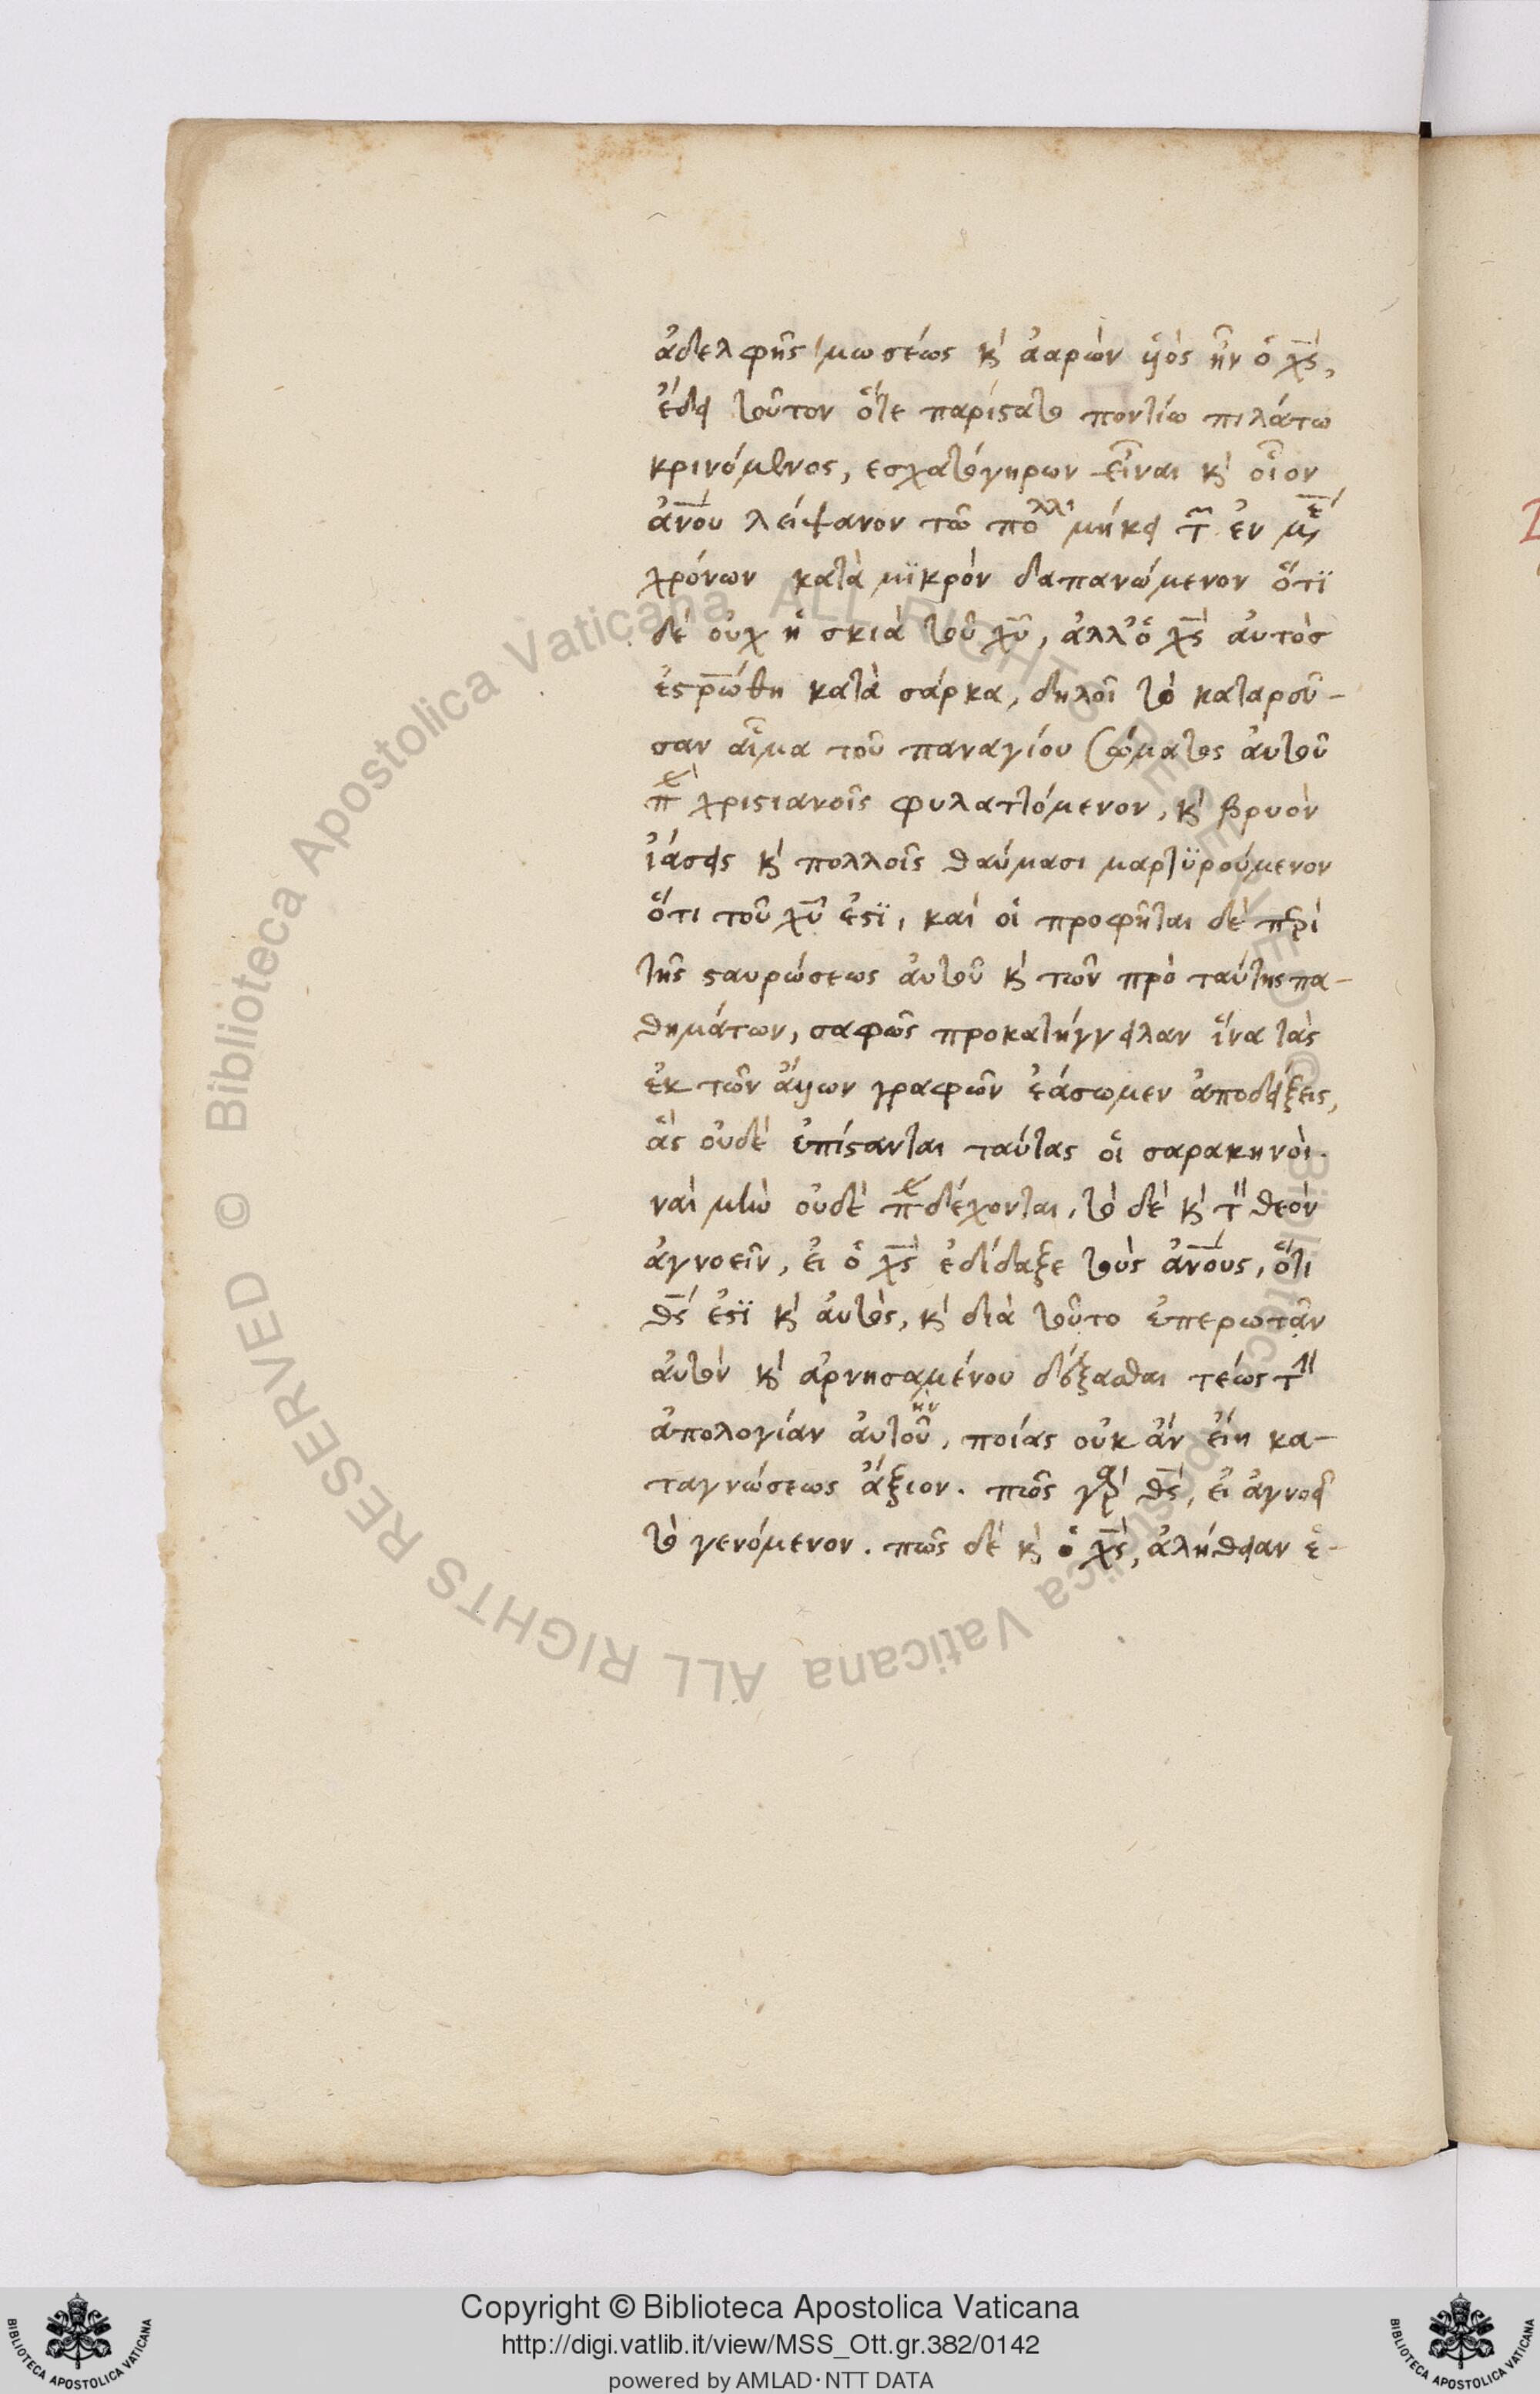 ἀδελφῆς μωσέως κ̀ ἀαρὼν υἱὸς ἦν ὁ χς̅,
ἔδει τοῦτον ὅτε παρίστατο ποντίω πιλάτω
κρινόμενος, εσχατόγηρων εἶναι κ̀ οἷον
ἀν̅ου λείψανον τῶ πολλῶ μήκει τῶν ἐν μέσω
χρόνων κατὰ μϊκρὸν δαπανώμενον ὅτϊ
δὲ οὐχ ἡ σκιὰ τοῦ χυ̅, ἀλλ' ὁ χς̅ αὐτὸσ
ἐσρ̅ώθη κατὰ σάρκα, δηλοῖ τὸ καταρρεῦ-
σαν αἷμα τοῦ παναγίου σώματος αὐτοῦ
παρὰ χριστιανοῖς φυλαττόμενον, κ̀ βρυὸν
ἰάσεις κ̀ πολλοῖς θαύμασι μαρτϋρούμενον
ὅτι τοῦ χυ̅ ἐστϊ, καὶ οἱ προφῆται δὲ περὶ
τῆς σταυρώσεως αὐτοῦ κ̀ τῶν πρὸ ταύτης πα-
θημάτων, σαφῶς προκατήγγειλαν ἵνα τὰς
ἐκ τῶν ἁγίων γραφῶν ἐάσωμεν ἀποδείξεις,
ἃς οὐδὲ ἐπίστανται ταύτας οἱ σαρακηνοὶ.
ναὶ μὴν οὐδὲ παραδέχονται, τὸ δὲ κ̀ τὸν θεὸν
ἀγνοεῖν, εἰ ὁ χς̅ ἐδίδαξε τοὺς ἀν̅ους, ὅτι
θς̅ ἐστϊ κ̀ αὐτὸς, κ̀ διὰ τοῦτο ἐπερωτᾶν
αὐτὸν κ̀ ἀρνησαμένου δέξασθαι τέως τὴν
ἀπολογίαν αὐτοῦ, ποίας οὐκ ἂν εἴη κα-
ταγνώσεως ἄξιον. πῶς γὰρ θς̅, εἰ ἀγνοεῖ
τὸ γενόμενον. πῶς δὲ κ̀ ὁ χς̅, ἀλήθειαν ἑ-
Copyright © Biblioteca Apostolica Vaticana
http://digi.vatlib.it/view/MSS_Ott.gr.382/0142
powered by AMLAD·NTT DATA
BIBLIOTECA APOSTOLICA VATICANA
BIBLIOTECA APOSTOLICA VATICANA
© Biblioteca Apostolica Vaticana ALL RIGHTS RESERVED
© Biblioteca Apostolica Vaticana ALL RIGHTS RESERVED